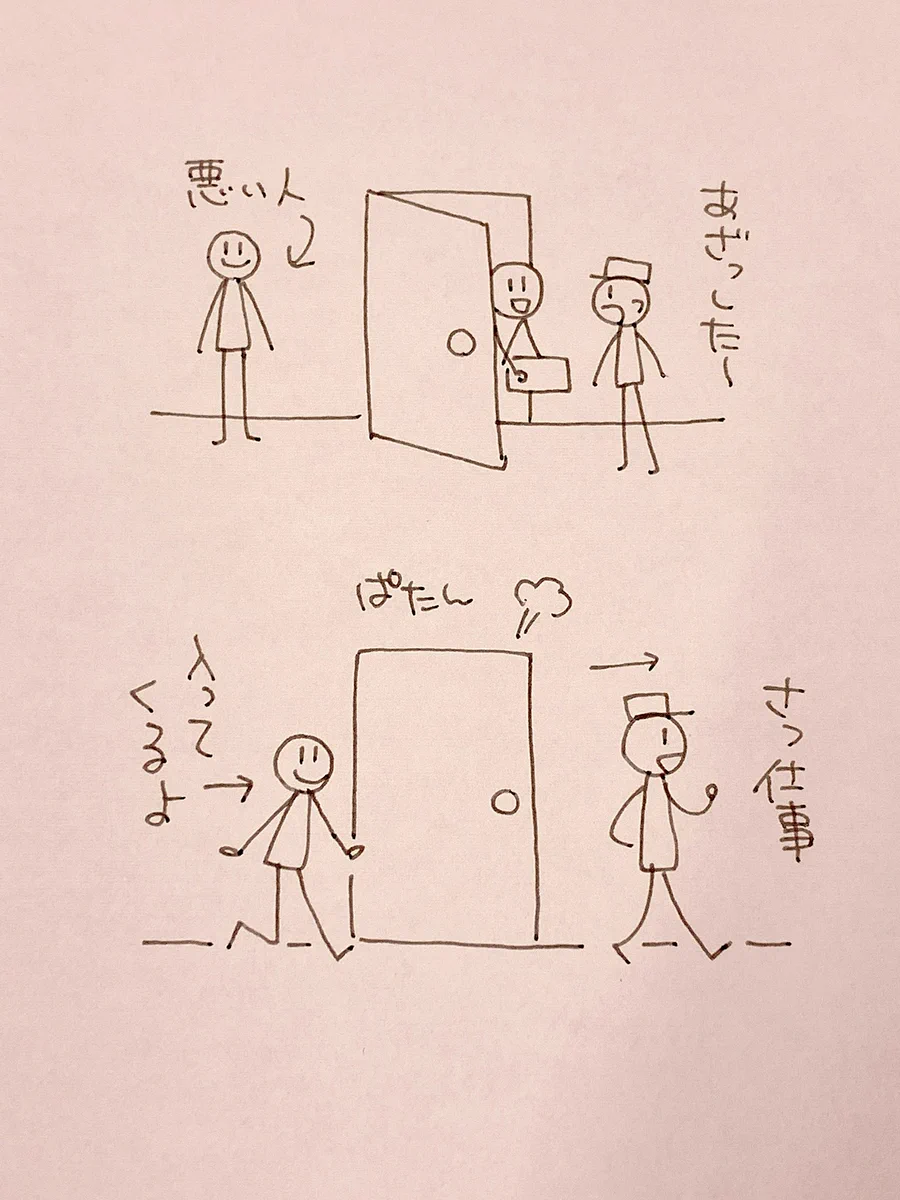 悪い人
あざっした〜
ぱたん
入って
くるよ
さっ仕事